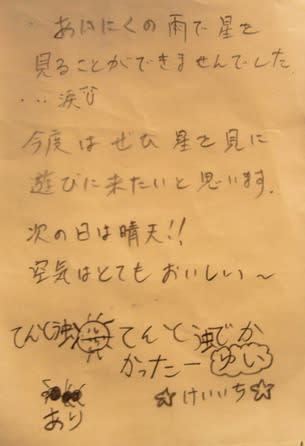 あいにくの雨で星を
見ることができませんでした
...涙
今度はぜひ星を見に
遊びに来たいと思います.
次の日は晴天!!
空気はとてもおいしい〜
てんとう虫
てんとう虫でか
かったこー ゆい
☆けいいち☆
あり